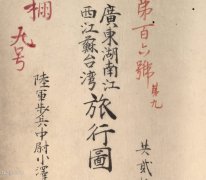 第百六號
第九
廣東湖南江
西江蘇台湾
旅行圖
共貳
棚
九号
陸軍步兵中尉小澤